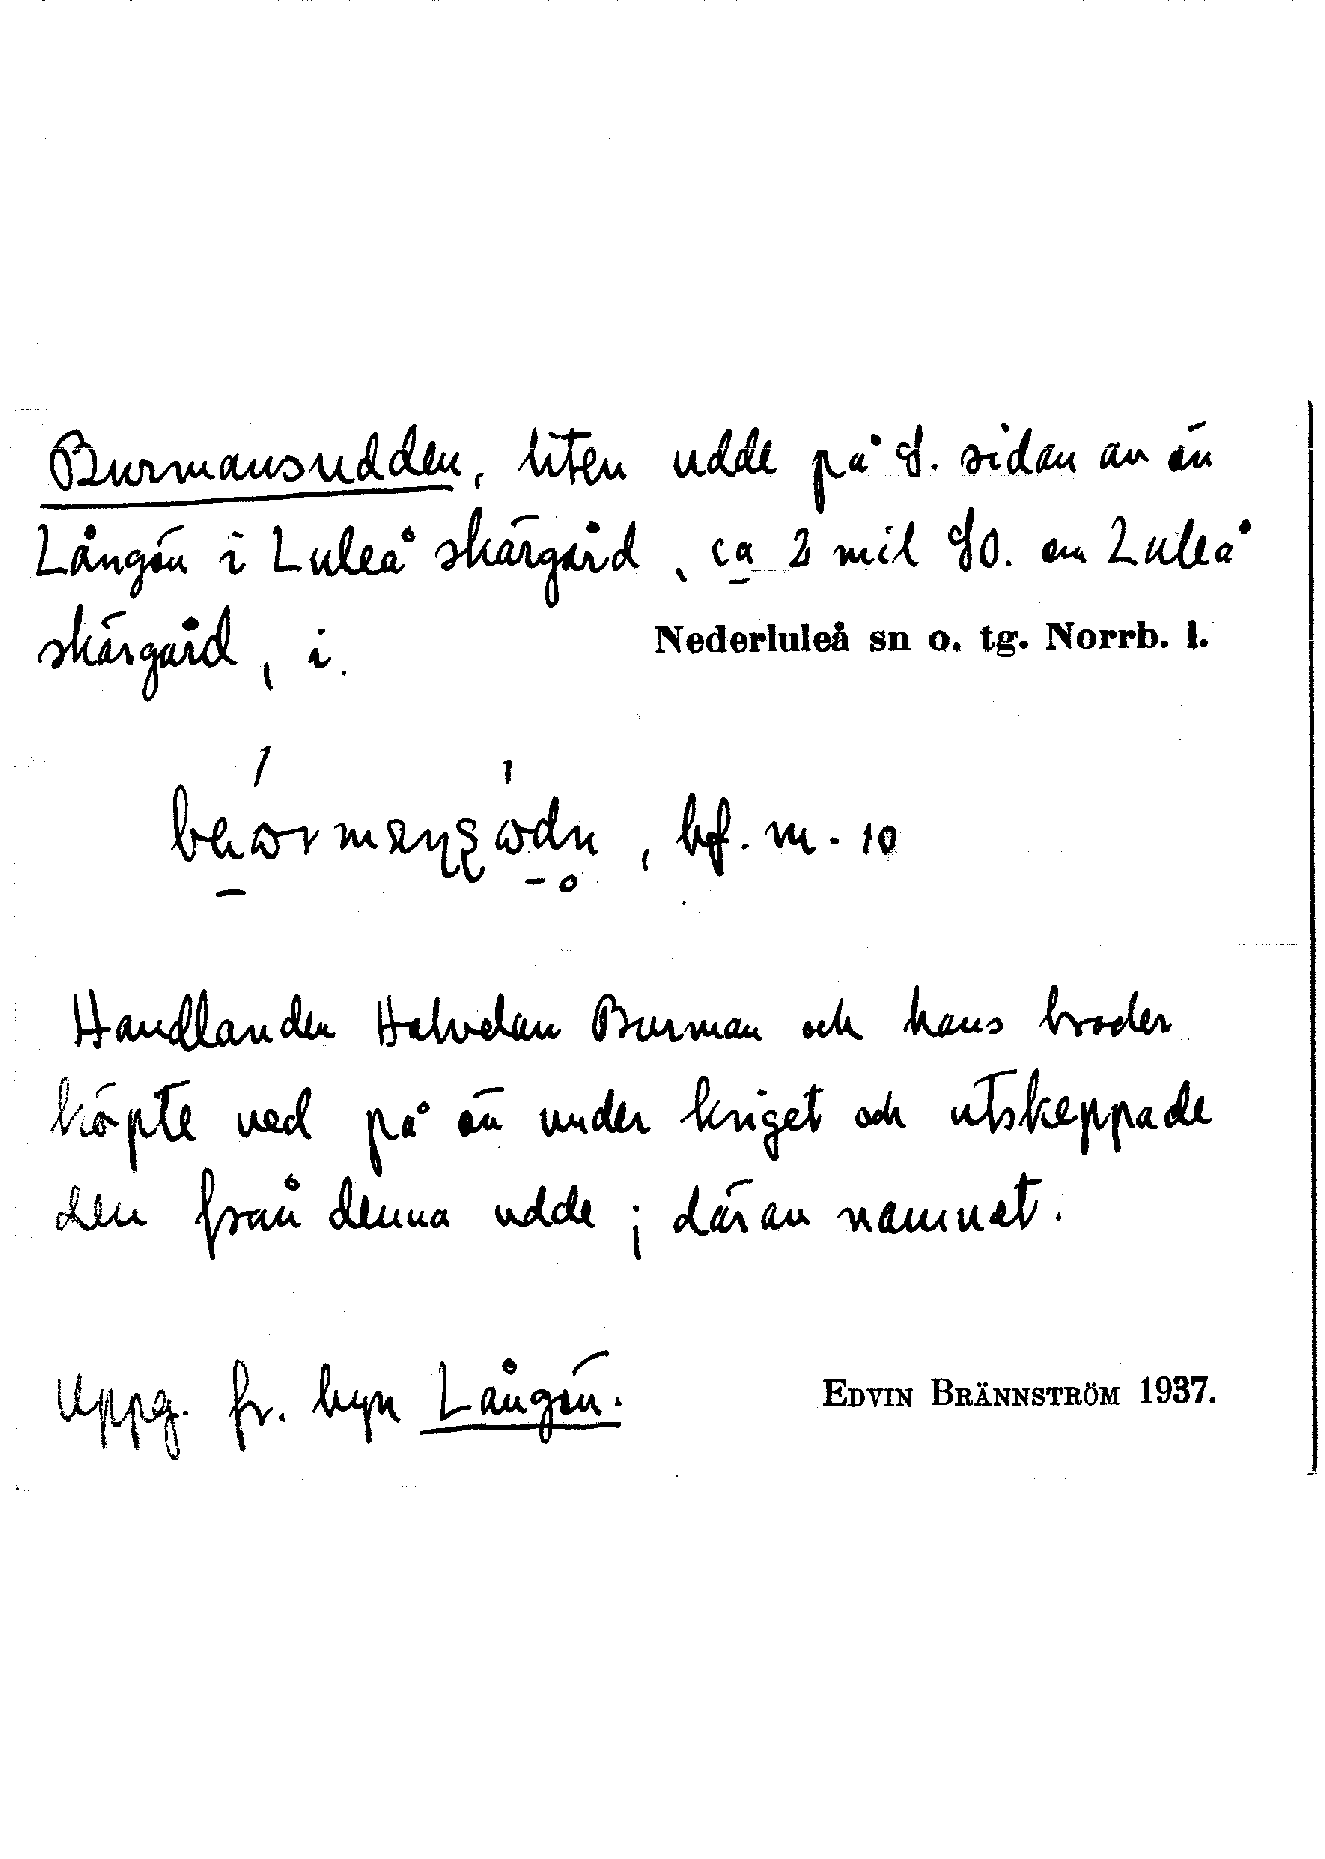 Burmansudden, liten udde på S. sidan av ön
Långön i Luleå skärgård, ca 2 mil SO. om Luleå
skärgård, i. Nederluleå sn o. tg. Norrb. l.
bf. m. 10
Handlanden Halvdan Burman och hans broder
köpte ved på ön under kriget och utskeppade
den från denna udde; därav namnet.
Uppg. fr. byn Långön. EDVIN BRÄNNSTRÖM 1937.